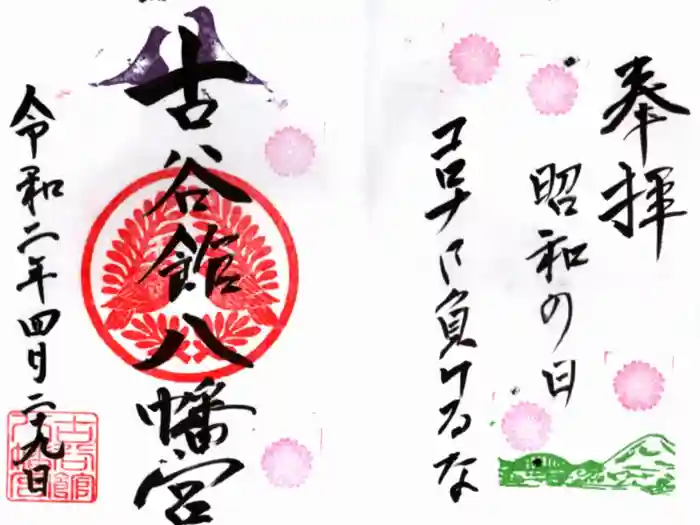 奉拝
昭和の日
コロナに負けるな
古谷館八幡宮
令和二年四月二十九日
古谷館八幡宮